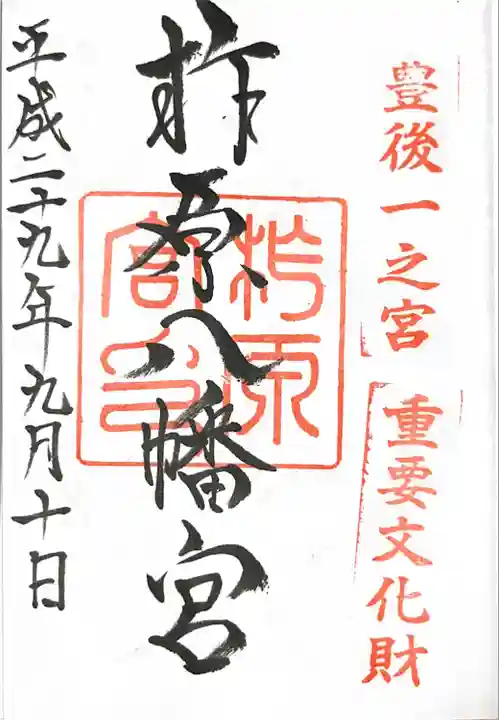 豊後一之宮
重要文化財
柞原八幡宮
柞原宮印
平成二十九年九月十日